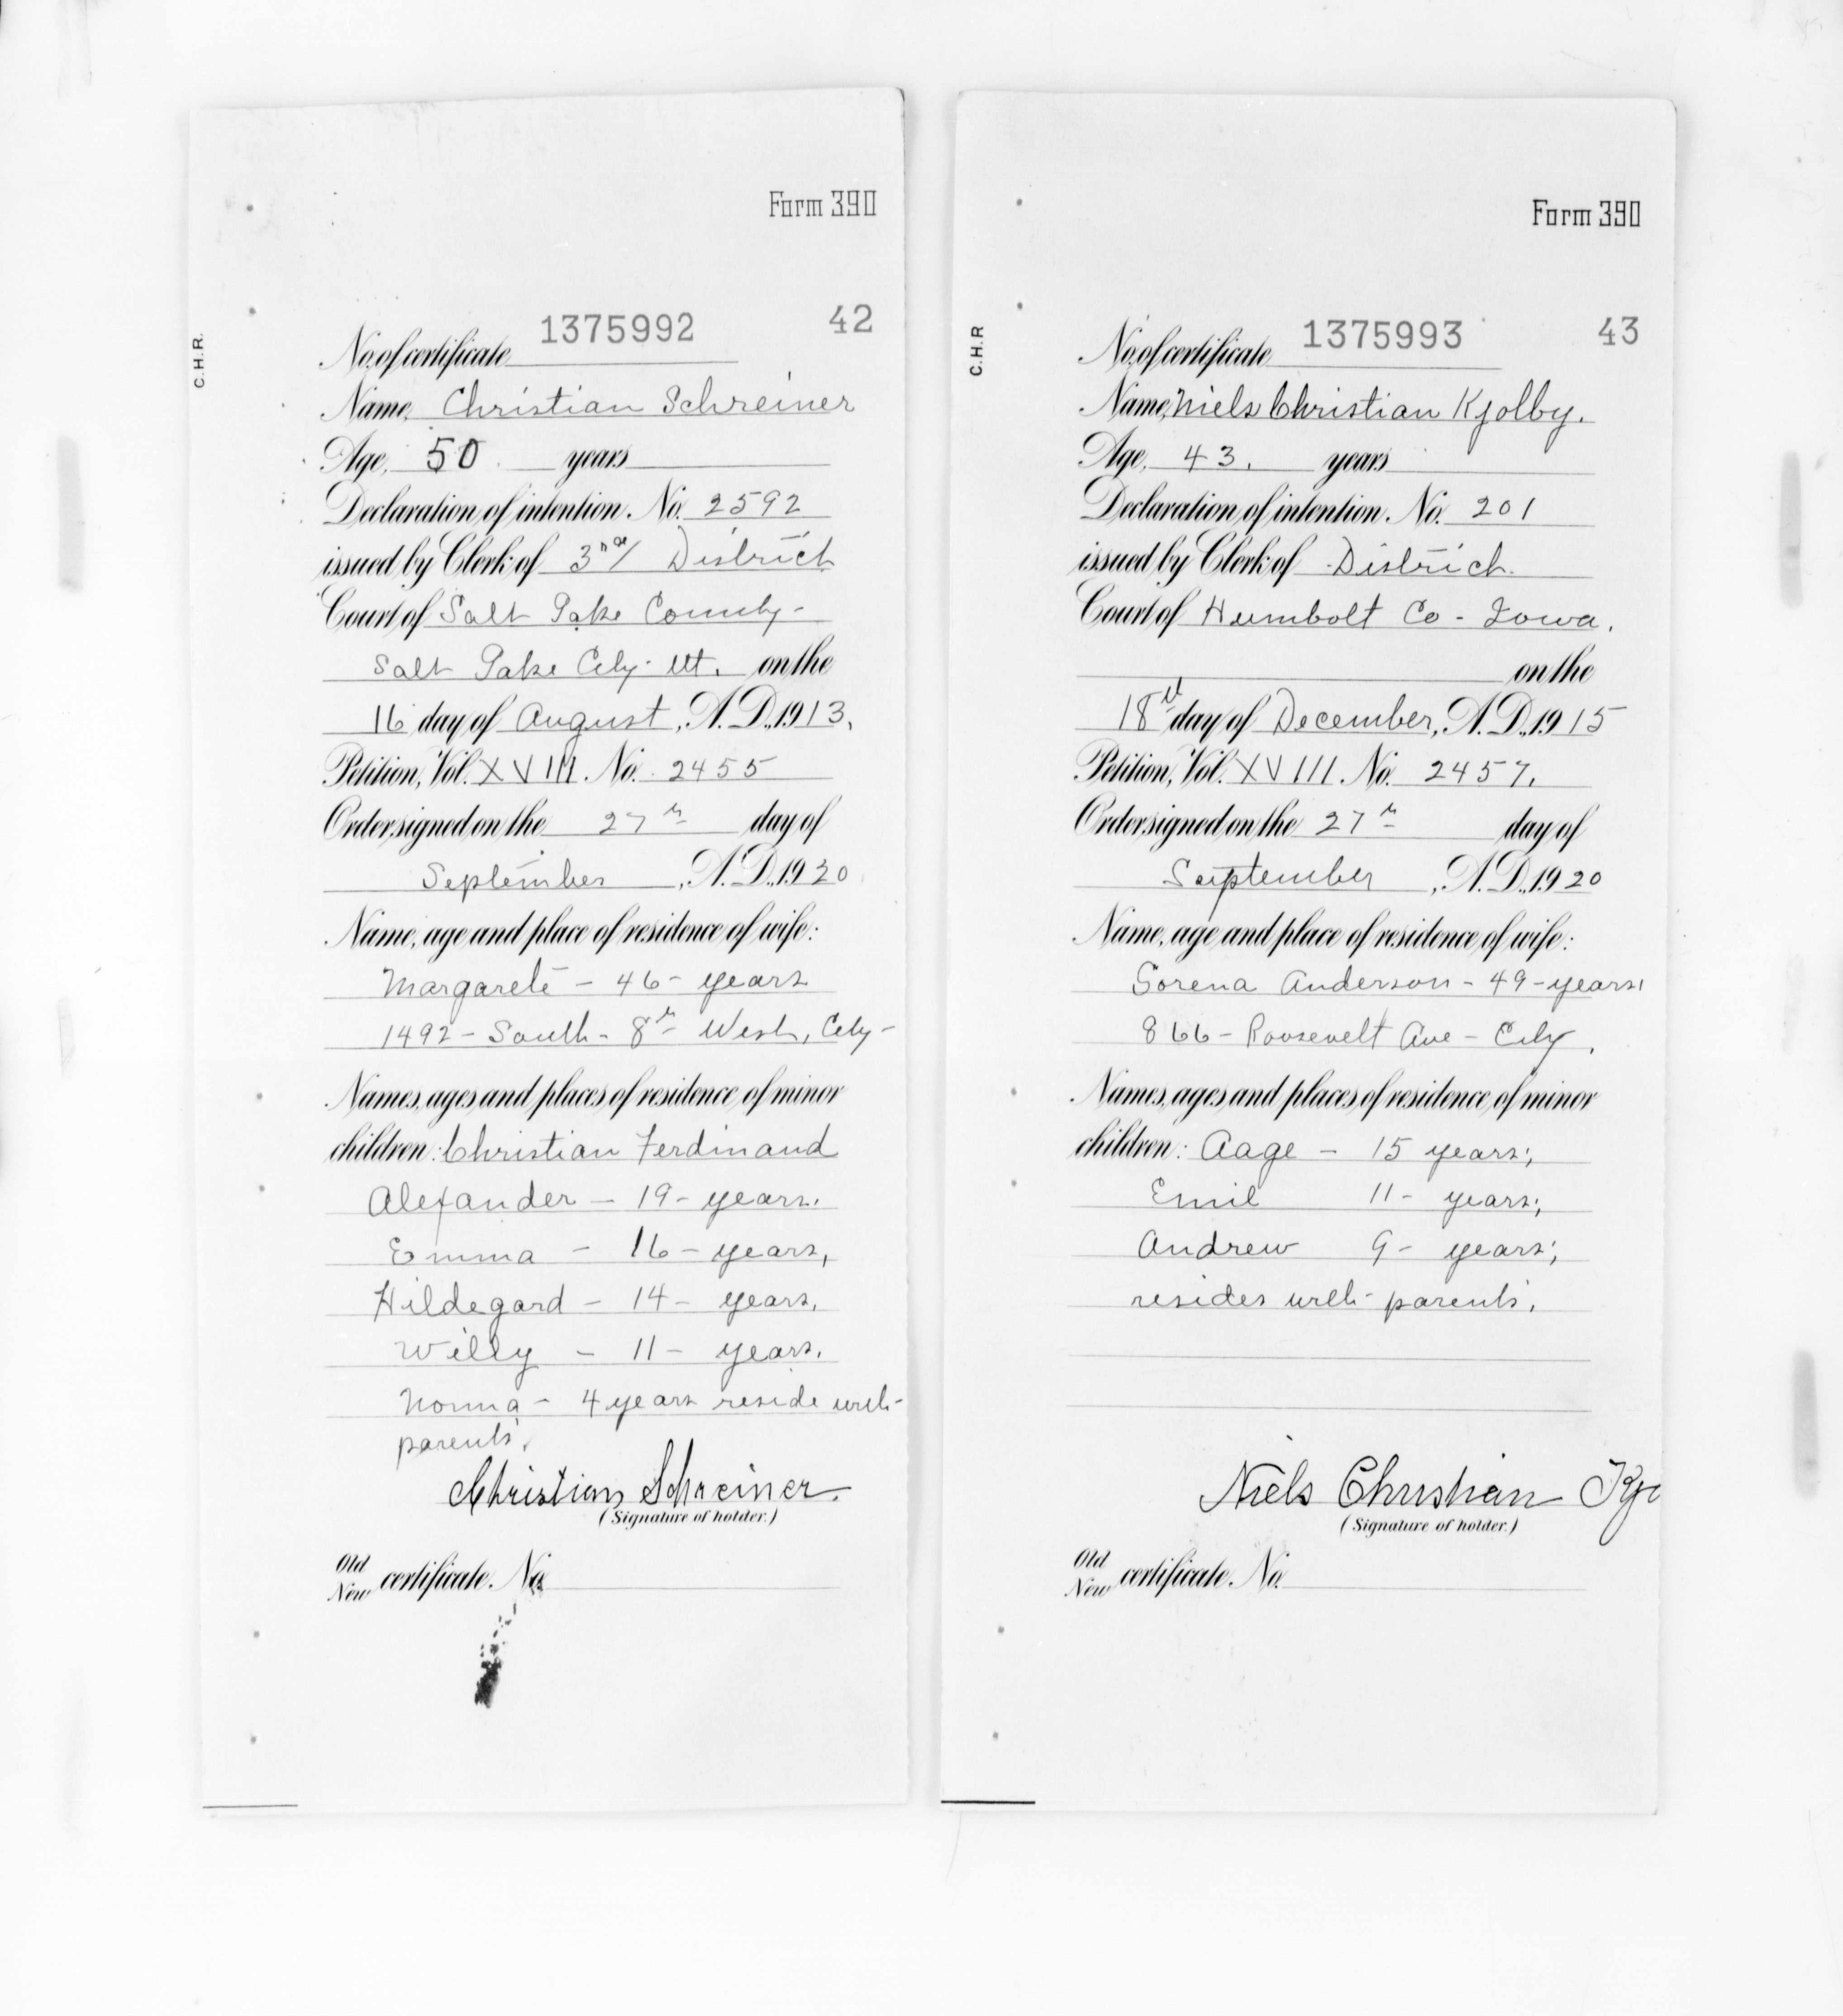 Form 390
C.H.R.
1375992 42
No. of certificate
Name, Christian Schreiner
Age, 50 years
Declaration of intention, No. 2592
issued by Clerk of 3rd District
Court of Salt Lake County -
Salt Lake City - Ut. on the
16 day of August, A.D., 1913.
Petition, Vol. XVIII. No. 2455
Order signed on the 27th day of
September, A.D., 1920
Name, age and place of residence of wife:
Margarete - 46 - years
1492 - South - 8th West, City -
Names, ages and places of residence of minor
children: Christian Ferdinand
Alexander - 19 - years.
Emma - 16 - years,
Hildegard - 14 - years,
Willy - 11 - years.
Norma - 4 years reside with
parents.
Christian Schreiner.
(Signature of holder.)
Old
New certificate. No.
Form 390
C.H.R
1375993 43
No. of certificate
Name, Niels Christian Kjolby.
Age, 43. years
Declaration of intention, No. 201
issued by Clerk of District
Court of Humbolt Co - Iowa.
on the
18th day of December, A.D., 1915
Petition, Vol. XVIII. No. 2457.
Order signed on the 27th day of
September, A.D., 1920
Name, age and place of residence of wife:
Sorena Anderson - 49 - years;
866 - Roosevelt Ave - City.
Names, ages and places of residence of minor
children: Aage - 15 years;
Emil 11 - years;
Andrew 9 - years;
resides with parents.
Niels Christian Kjo
(Signature of holder.)
Old
New certificate. No.